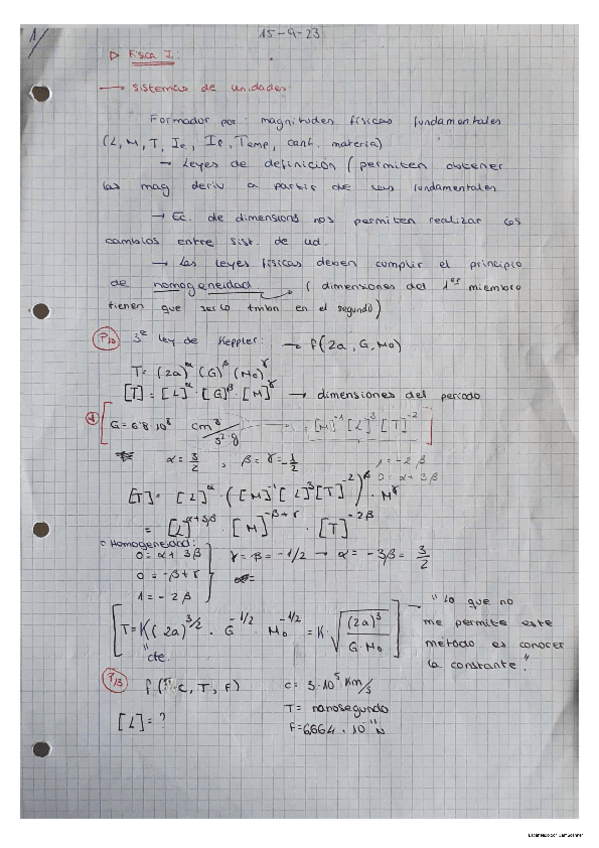 1/
15-9-23
▷ Física I.
→ Sistemas de unidades.
Formador por: magnitudes físicas fundamentales
(L, M, T, Ie, Ip, Temp, cant. materia)
→ Leyes de definición (permiten obtener
las mag deriv a partir de las fundamentales
→ Ec. de dimensions nos permiten realizar los
cambios entre sist. de ud.
→ Las leyes físicas deben cumplir el principio
de homogeneidad → (dimensiones del 1er miembro
tienen que serlo tmbn en el segundo)
P10 3ª ley de Keppler: → f(2a, G, M₀)
T = (2a)^α (G)^β (M₀)^γ
[T] = [L]^α · [G]^β · [M]^γ → dimensiones del periodo
G = 6'8·10⁸ → [M]⁻¹ [L]³ [T]⁻²
α = 3/2 , β = γ = -1/2
1 = -2β
0 = α + 3β
[T] = [L]^α · ([M]⁻¹ [L]³ [T]⁻²)^β · M^γ
= [L]^α+3β · [M]^-β+γ · [T]^-2β
Homogeneidad:
0 = α + 3β
γ = β = -1/2 → α = -3β = 3/2
0 = -β + γ
1 = -2β
T = K (2a)^3/2 · G^-1/2 · M₀^-1/2 = K · √((2a)³ / G·M₀) →
"cte.
"Lo que no
me permite este
método es conocer
la constante."
P13 f(C, T, F) C = 3·10⁵ Km/s
T = nanosegundo
[L] = ?
F = 6,664 · 10⁻¹¹ N